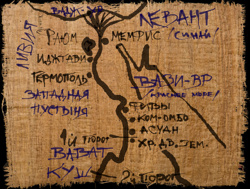 ВАДЖ-УР
ЛЕВАНТ
/СИНАЙ/
ЛИВИЯ
РАЮМ
МЕМФИС
ИДЖТАВИ
ГЕРМОПОЛЬ
ЗАПАДНАЯ
ПУСТЫНЯ
ВАДИ-ВР
/КРАСНОЕ МОРЕ/
ФИВЫ
КОМ-ОМБО
АСУАН
1Й ПОРОГ
ХР.ДР.ЗЕМ.
ВАВАТ
КУШ
2Й ПОРОГ